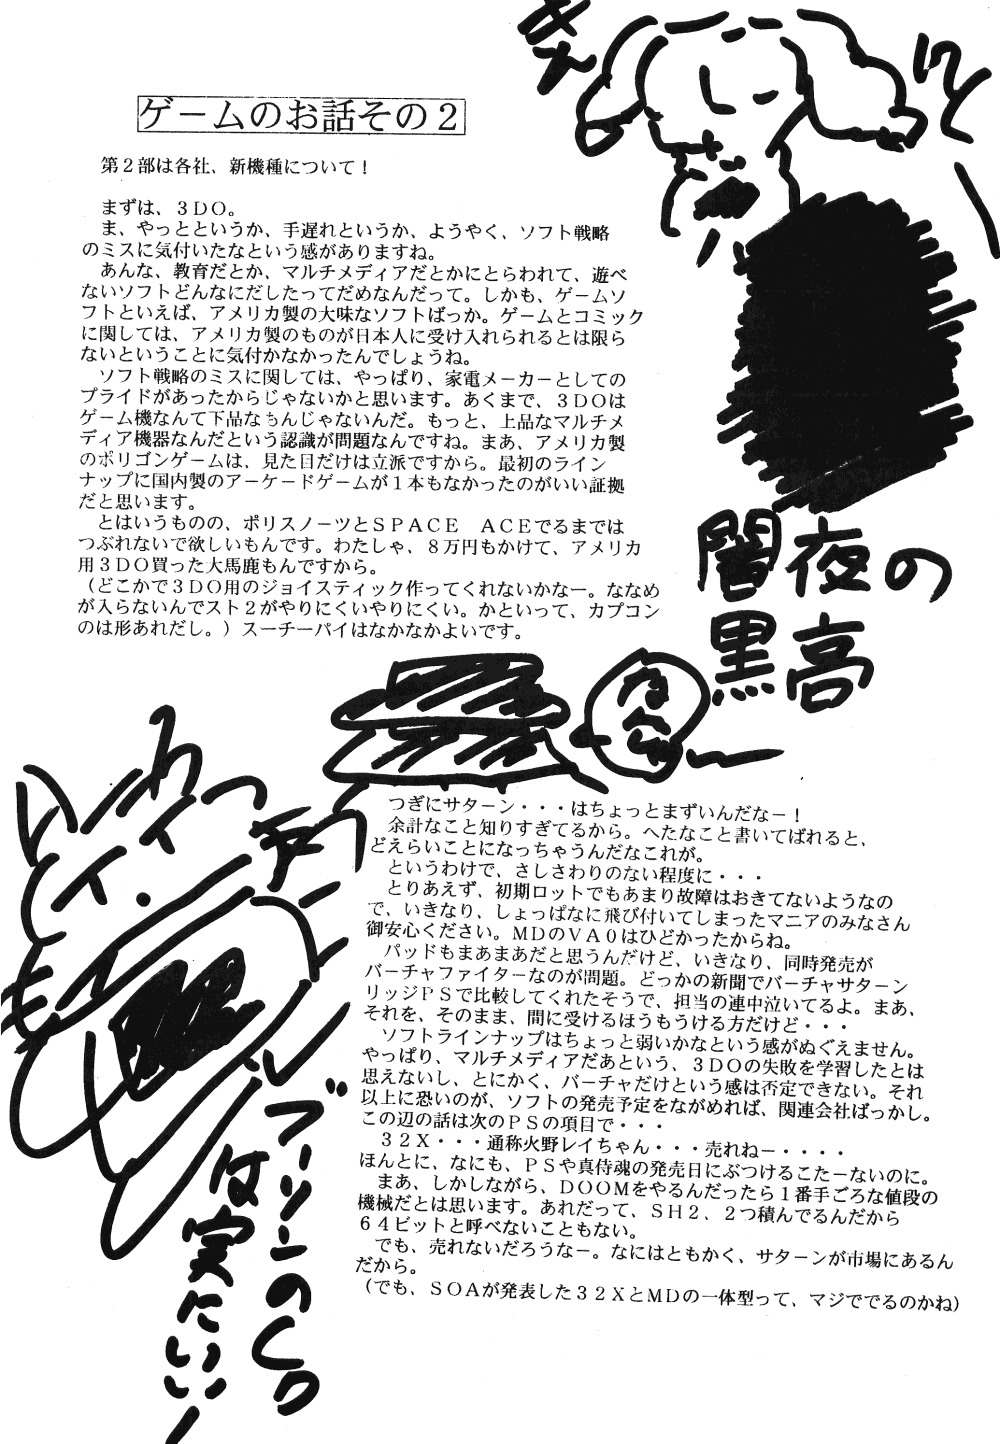 ゲームのお話その2
第2部は各社、新機種について！
まずは、3DO。
ま、やっとというか、手遅れというか、ようやく、ソフト戦略
のミスに気付いたなという感がありますね。
あんな、教育だとか、マルチメディアだとかにとらわれて、遊べ
ないソフトどんなにだしたってだめなんだって。しかも、ゲームソ
フトといえば、アメリカ製の大味なソフトばっか。ゲームとコミック
に関しては、アメリカ製のものが日本人に受け入れられるとは限ら
ないということに気付かなかったんでしょうね。
ソフト戦略のミスに関しては、やっぱり、家電メーカーとしての
プライドがあったからじゃないかと思います。あくまで、3DOは
ゲーム機なんて下品なもんじゃないんだ。もっと、上品なマルチメ
ディア機器なんだという認識が問題なんですね。まあ、アメリカ製
のポリゴンゲームは、見た目だけは立派ですから。最初のライン
ナップに国内製のアーケードゲームが1本もなかったのがいい証拠
だと思います。
とはいうものの、ポリスノーツとSPACE ACEでるまでは
つぶれないで欲しいもんです。わたしゃ、8万円もかけて、アメリカ
用3DO買った大馬鹿もんですから。
（どこかで3DO用のジョイスティック作ってくれないかなー。ななめ
が入らないんでスト2がやりにくいやりにくい。かといって、カプコン
のは形あれだし。）スーチーパイはなかなかよいです。
闇夜の
黒高
つぎにサターン・・・はちょっとまずいんだなー！
余計なこと知りすぎてるから。へたなこと書いてばれると、
どえらいことになっちゃうんだなこれが。
というわけで、さしさわりのない程度に・・・
とりあえず、初期ロットでもあまり故障はおきてないようなの
で、いきなり、しょっぱなに飛び付いてしまったマニアのみなさん
御安心ください。MDのVA0はひどかったからね。
パッドもまあまあだと思うんだけど、いきなり、同時発売が
バーチャファイターなのが問題。どっかの新聞でバーチャサターン
リッジPSで比較してくれたそうで、担当の連中泣いてるよ。まあ、
それを、そのまま、間に受けるほうもうける方だけど・・・
ソフトラインナップはちょっと弱いかなという感がぬぐえません。
やっぱり、マルチメディアだあという、3DOの失敗を学習したとは
思えないし、とにかく、バーチャだけという感は否定できない。それ
以上に恐いのが、ソフトの発売予定をながめれば、関連会社ばっかし。
この辺の話は次のPSの項目で・・・
32X・・・通称火野レイちゃん・・・売れねー・・・・
ほんとに、なにも、PSや真侍魂の発売日にぶつけるこたーないのに。
まあ、しかしながら、DOOMをやるんだったら1番手ごろな値段の
機械だとは思います。あれだって、SH2、2つ積んでるんだから
64ビットと呼べないこともない。
でも、売れないだろうなー。なにはともかく、サターンが市場にあるん
だから。
（でも、SOAが発表した32XとMDの一体型って、マジででるのかね）
は実にいい！